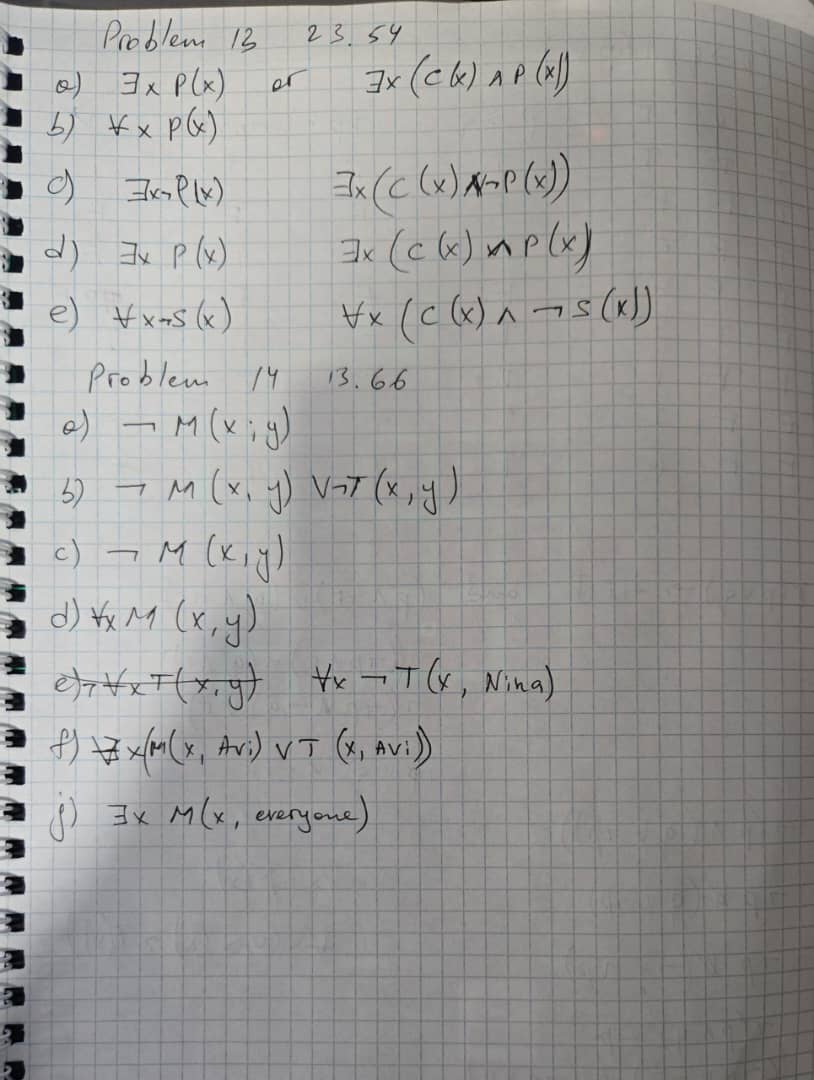 Problem 13 23.54
a) ∃x P(x) or ∃x (C(x) ∧ P(x))
b) ∀x P(x)
c) ∃x¬P(x) ∃x (C(x) ∧¬P(x))
d) ∃x P(x) ∃x (C(x) ∧ P(x)
e) ∀x¬S(x) ∀x (C(x) ∧ ¬S(x))
Problem 14 13.66
a) ¬ M(x, y)
b) ¬ M(x, y) ∨¬T(x, y)
c) ¬ M(x, y)
d) ∀x M(x, y)
e) ¬∀x T(x, y) ∀x ¬T(x, Nina)
f) ∀x(M(x, Avi) ∨ T(x, Avi))
j) ∃x M(x, everyone)